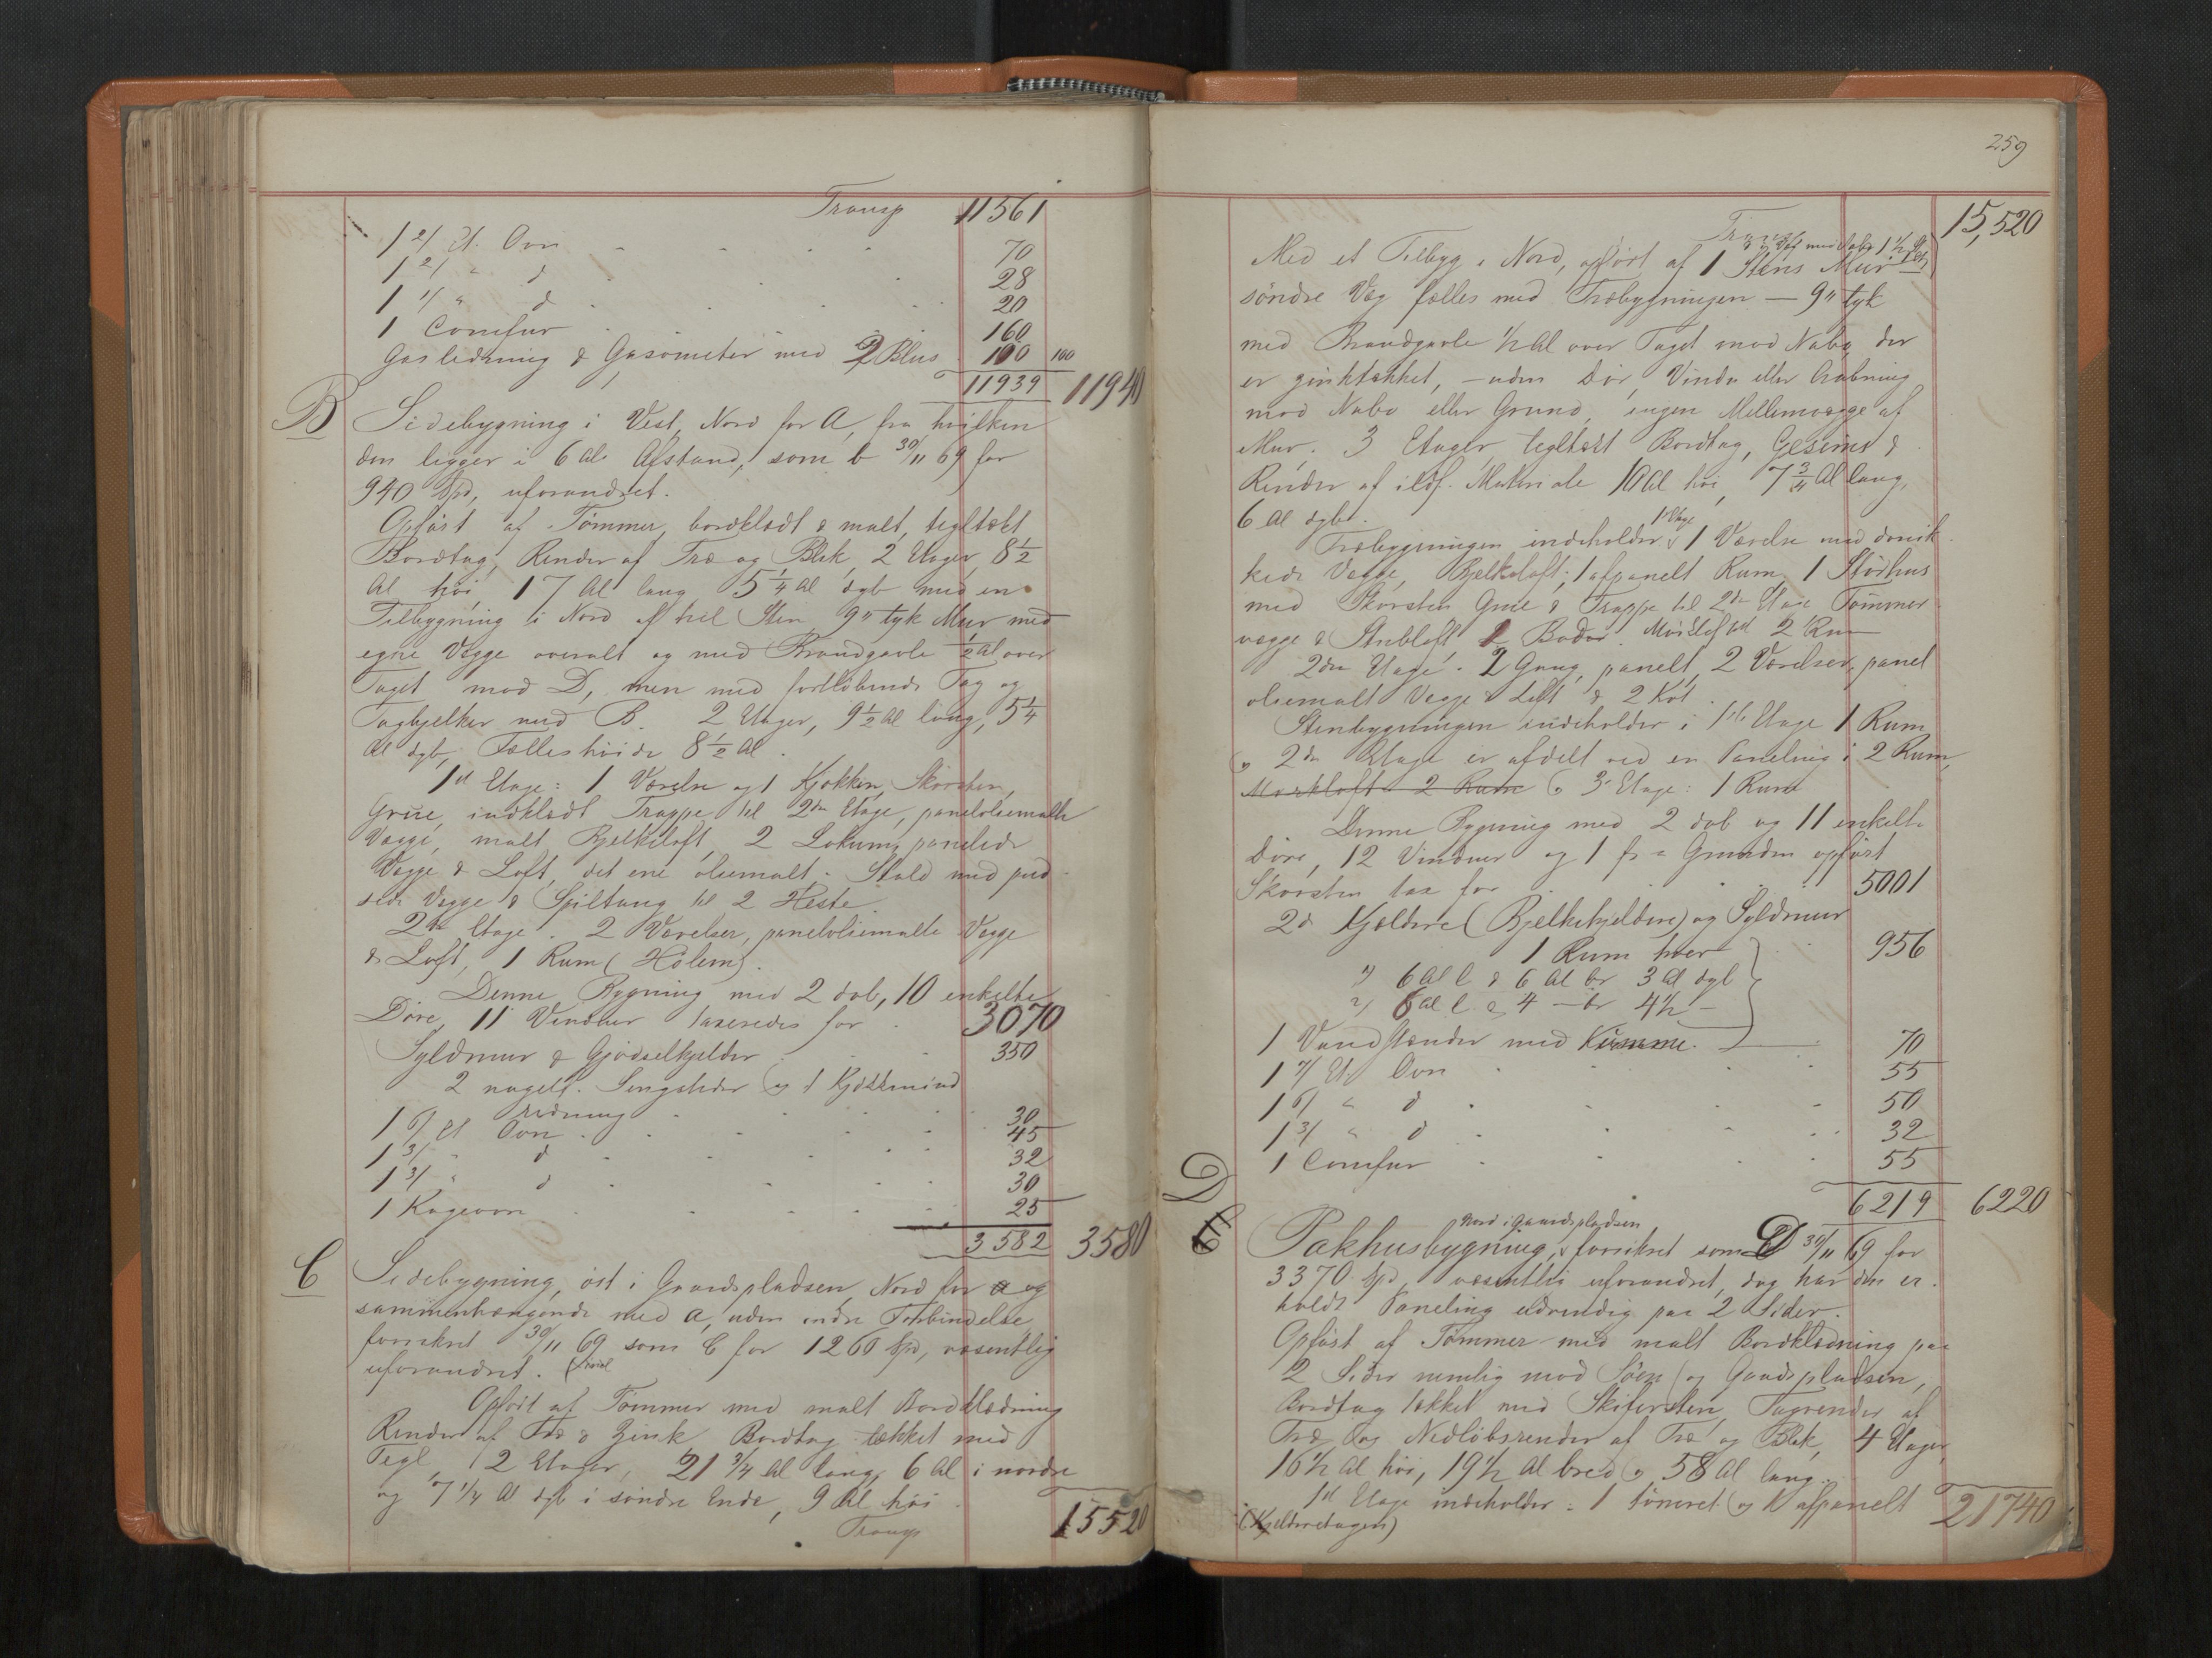 Transp 11561
1 2/ Et. Ovn 70
1 2/ " d 28
1 1/ " d 20
1 Comfur 160
Gasledning & Gasometer med 2 Blus 100 100
11939 11940
B Sidebygning i Vest, Nord for A, fra hvilken
den ligger i 6 Al. Afstand, som b 30/11 69 for
940 Spd, uforandret.
Opført af Tømmer, bordklædt & malt, tegltækt
Bordtag, Render af Træ og Blik, 2 Etager, 8 1/2
Al høi, 17 Al lang 5 1/4 Al dyb med en
Tilbygning i Nord af heel Sten 9" tyk Mur med
egne Vægge overalt og med Brandgavle 1/2 Al over
Taget mod D, men med fortløbende Tag og
Tagbjelker med B. 2 Etager, 9 1/2 Al lang, 5 1/4
Al dyb, Fælleshøide 8 1/2 Al.
1st Etage: 1 Værelse og 1 Kjøkken, Skorsten,
Grue, indklædt Trappe til 2den Etage, paneloliemalte
Vægge, malt Bjelkeloft, 2 Lokum, panelede
Vægge & Loft, det ene oliemalt. Stald med pud-
sede Vægge & Spiltaug til 2 Heste.
2den Etage. 2 Værelser, paneloliemalte Vægge
& Loft, 1 Rum (Hølem).
Denne Bygning med 2 dob, 10 enkelte
Døre, 11 Vinduer taxeredes for 3070
Syldmur & Gjødselkjelder 350
2 nagelf. Sengesteder og 1 Kjøkkenind
redning 30
1 6/ Et Ovn 45
1 3/ " d 32
1 3/ " d 30
1 Kogeovn 25
3582 3580
C Sidebygning, øst i Gaardspladsen, Nord for a og
sammenhængende med a, uden indre Forbindelse,
forsikret 30/11 69 som C for 1260 Spd, væsentlig
uforandret.
Opført af Tømmer med malt Bordklædning
Render af Træ & Zink Bordtag tækket med
Tegl, 2 Etager, 21 3/4 Al lang, 6 Al i nordre
og 7 1/4 Al dyb i søndre Ende, 9 Al høi.
Transp 15520
259
Transp 15,520
Med et Tilbyg i Nord, opført af 1 Stens Mur
søndre Væg fælles med Træbygningen — 9" tyk
med Brandgavle 1/2 Al over Taget mod Nabo, der
er zinktækket, - uden Dør, Vindu eller Aabning
mod Nabo eller Grund, ingen Mellemvægge af
Mur. 3 Etager, tegltækt Bordtag, Gesims &
Render af ildf. Materiale 10 Al høi, 7 3/4 Al lang,
6 Al dyb.
1ste Etage
Træbygningen indeholder 1 Værelse med
Vægge, Bjelkeloft, 1 afpanelt Rum, 1 Stødhus
med Skorsten Grue & Trappe til 2den Etage Tømmer
vægge & Stubloft, Boder. Mørkloft 2 Rum
2den Etage. 2 Gang, panelt, 2 Værelser, panel
oliemalt Vægge & Loft & 2 Kot
Stenbygningen indeholder i 1ste Etage 1 Rum
og 2den Etage er afdelt ved en Paneling i 2 Rum,
Mørkloft 2 Rum og 3. Etage: 1 Rum
Denne Bygning med 2 dob og 11 enkelte
Døre, 12 Vinduer og 1 fra Grunden opført
Skorsten tax for 5001
2de Kjeldere (Bjelkekjeldere) og Syldmur
1 Rum hver 956
1) 6 Al l & 6 Al br 3 Al dyb
2) 6 Al l & 4 — br 4 1/2 —
1 Vandstænder med Kumme. 70
1 7/ Et Ovn 55
1 6/ " d 50
1 3/ " d 32
1 Comfur 55
6219 6220
D
Nord i Gaardspladsen
Pakhusbygning, forsikret som D 30/11 69 for
3370 Spd, væsentlig uforandret, dog har den er-
holdt Paneling udvendig paa 2 Sider.
Opført af Tømmer med malt Bordklædning paa
2 Sider nemlig mod Søen og Gaardspladsen,
Bordtag tækket med Skifersten, Tagrender af
Træ og Nedløbsrender af Træ og Blik, 4 Etager,
16 1/2 Al høi, 19 1/2 Al bred og 58 Al lang.
1st Etage indeholder: 1 tømret og 1 afpanelt 21740
(Kjelderetagen)